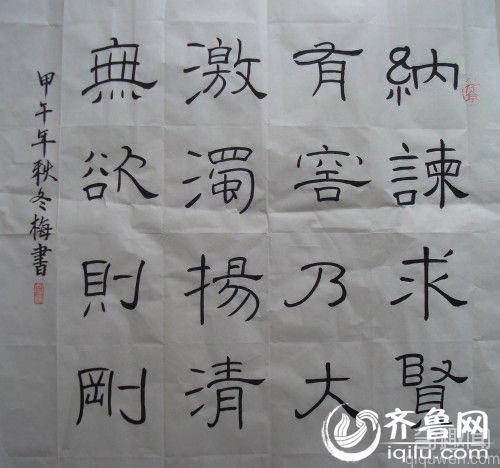 納諫求賢
有容乃大
激濁揚清
無欲則剛
甲午年秋冬梅書
齐鲁网
iqilu.com
qiquwen.com